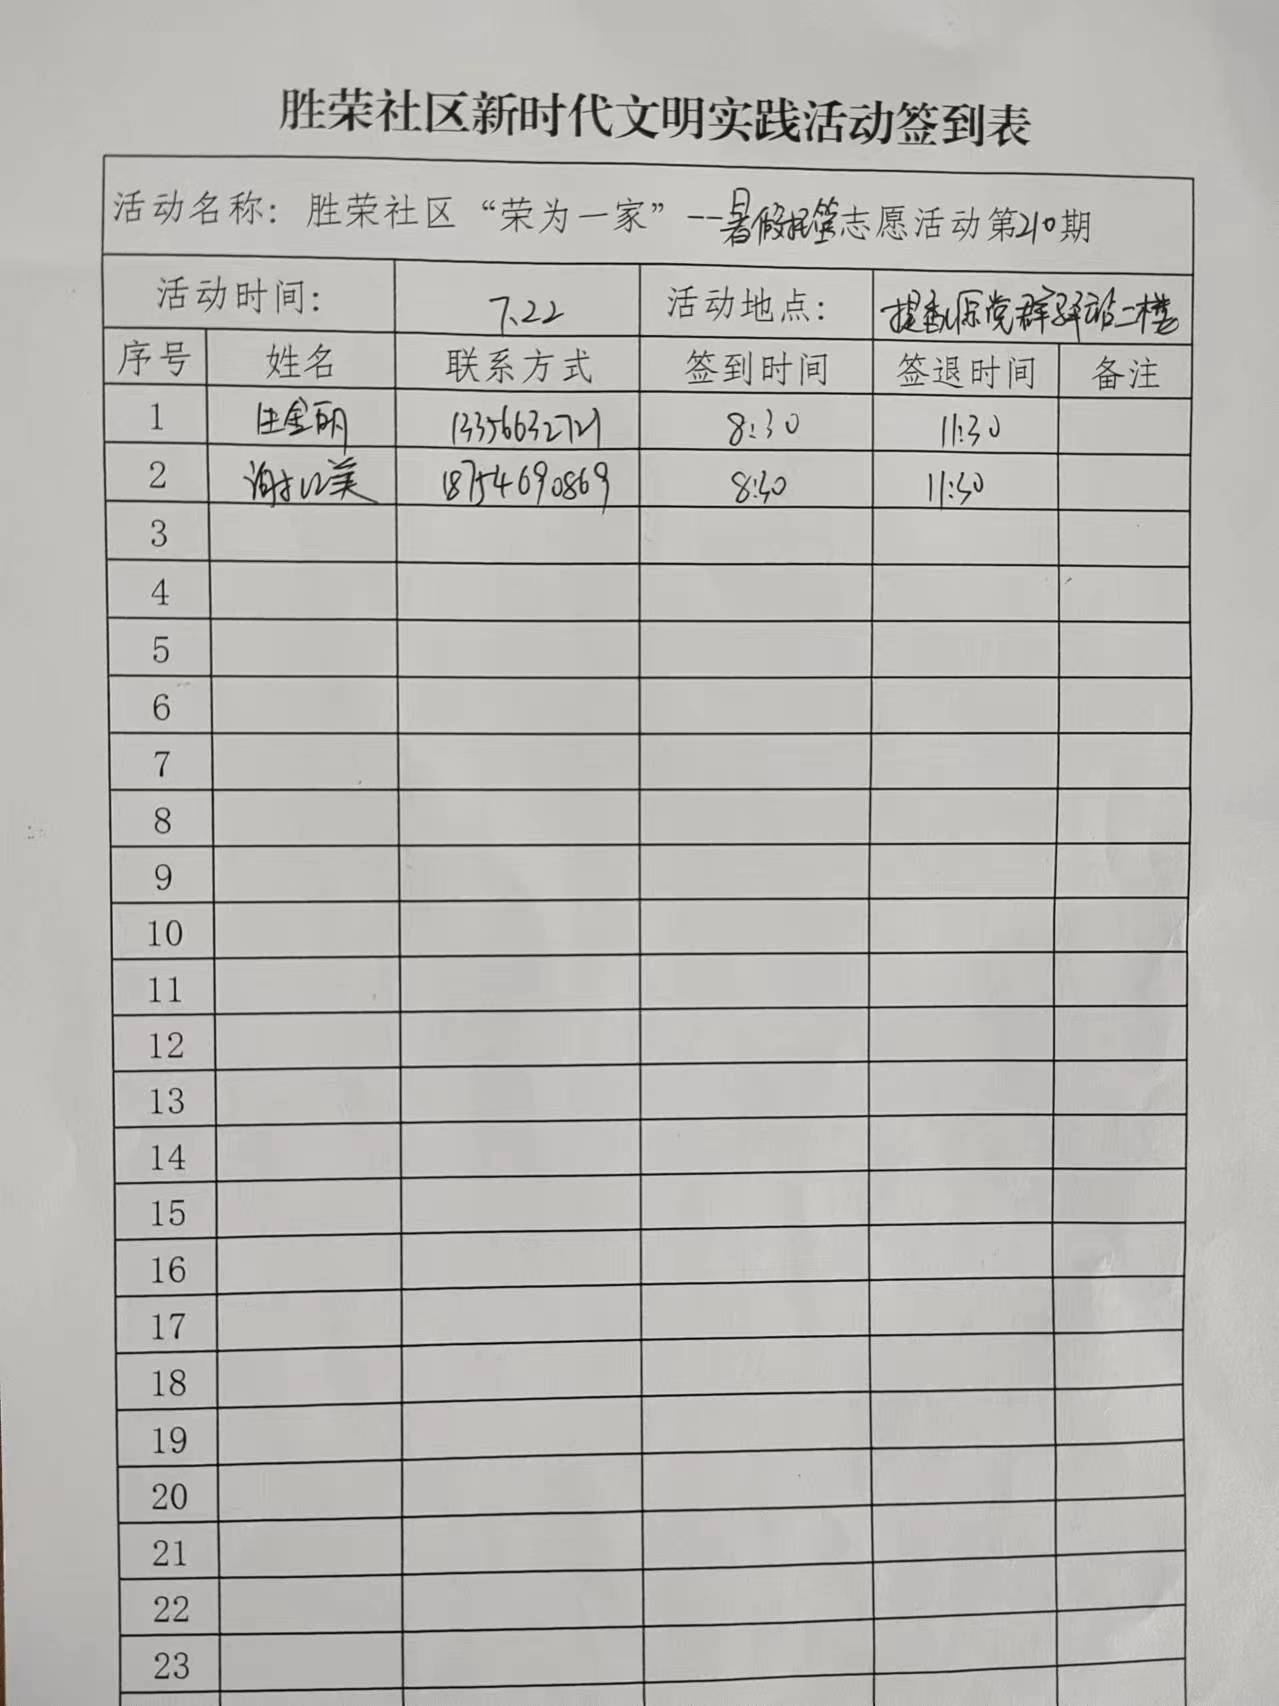 胜荣社区新时代文明实践活动签到表
活动名称：胜荣社区“荣为一家”--暑假托管志愿活动第210期
活动时间： 7.22 活动地点： 党群驿站二楼
序号 姓名 联系方式 签到时间 签退时间 备注
1 金丽 13356632721 8:30 11:30
2 谢 美 18754690869 8:30 11:30
3
4
5
6
7
8
9
10
11
12
13
14
15
16
17
18
19
20
21
22
23